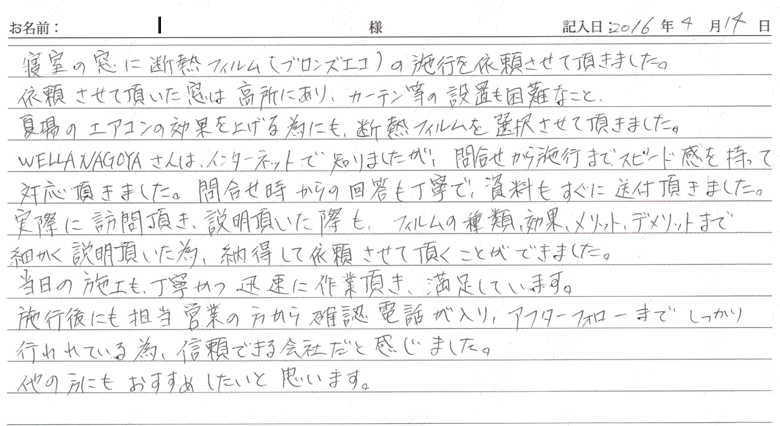 お名前： 様 記入日：2016年4月14日
寝室の窓に断熱フィルム(ブロンズエコ)の施行を依頼させて頂きました。
依頼させて頂いた窓は高所にあり、カーテン等の設置も困難なこと、
夏場のエアコンの効果を上げる為にも、断熱フィルムを選択させて頂きました。
WELLANAGOYAさんは、インターネットで知りましたが、問合せから施行までスピード感を持って
対応頂きました。問合せ時からの回答も丁寧で、資料もすぐに送付頂きました。
実際に訪問頂き、説明頂いた際も、フィルムの種類、効果、メリット、デメリットまで
細かく説明頂いた為、納得して依頼させて頂くことができました。
当日の施工も、丁寧かつ迅速に作業頂き、満足しています。
施行後にも担当営業の方から確認電話が入り、アフターフォローまでしっかり
行れれている為、信頼できる会社だと感じました。
他の方にもおすすめしたいと思います。